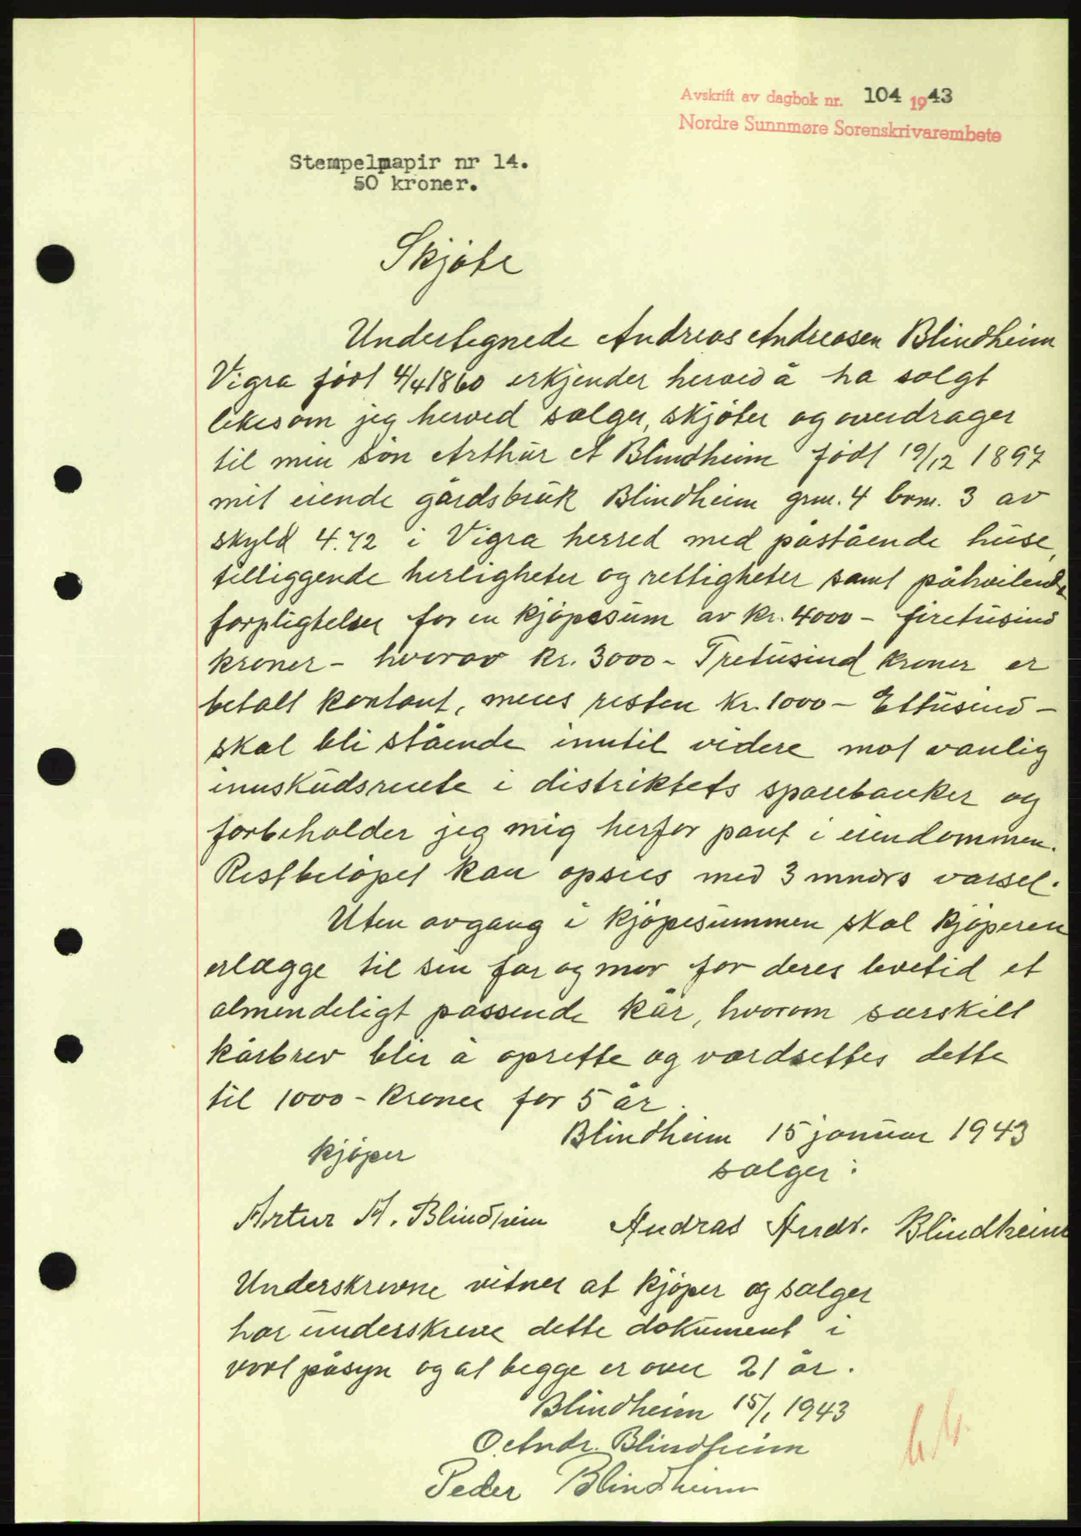 Avskrift av dagbok nr. 104 1943
Nordre Sunnmøre Sorenskrivarembete
Stempelpapir nr 14.
50 kroner.
Skjøte
Undertegnede Andreas Andreasen Blindheim
Vigra født 4/4 1860 erkjender herved å ha solgt
likesom jeg herved sælger, skjøter og overdrager
til min søn Arthur A Blindheim født 19/12 1897
mit eiende gårdsbruk Blindheim grnr. 4 brnr. 3 av
skyld 4.72 i Vigra herred med påstående huse,
tilliggende herligheter og rettigheter samt påhvilende
forpligtelser for en kjøpesum av kr. 4000 - firetusind
kroner - hvorav kr. 3000 - Tretusind kroner er
betalt kontant, mens resten kr. 1000 - Ettusind -
skal bli stående inntil videre mot vanlig
innskudsrente i distriktets sparebanker og
forbeholder jeg mig herfor pant i eiendommen.
Restbeløpet kan opsies med 3 mndrs varsel.
Uten avgang i kjøpesummen skal kjøperen
erlægge til sin far og mor for deres levetid et
almendeligt passende kår, hvorom særskilt
kårbrev blir å oprette og værdsettes dette
til 1000 - kroner for 5 år.
Blindheim 15 januar 1943
kjøper
sælger:
Artur A. Blindheim Andras Andr. Blindheim
Underskrevne vitner at kjøper og sælger
har underskreve dette dokument i
vort påsyn og at begge er over 21 år.
Blindheim 15/1 1943
O. Andr. Blindheim
Peder Blindheim